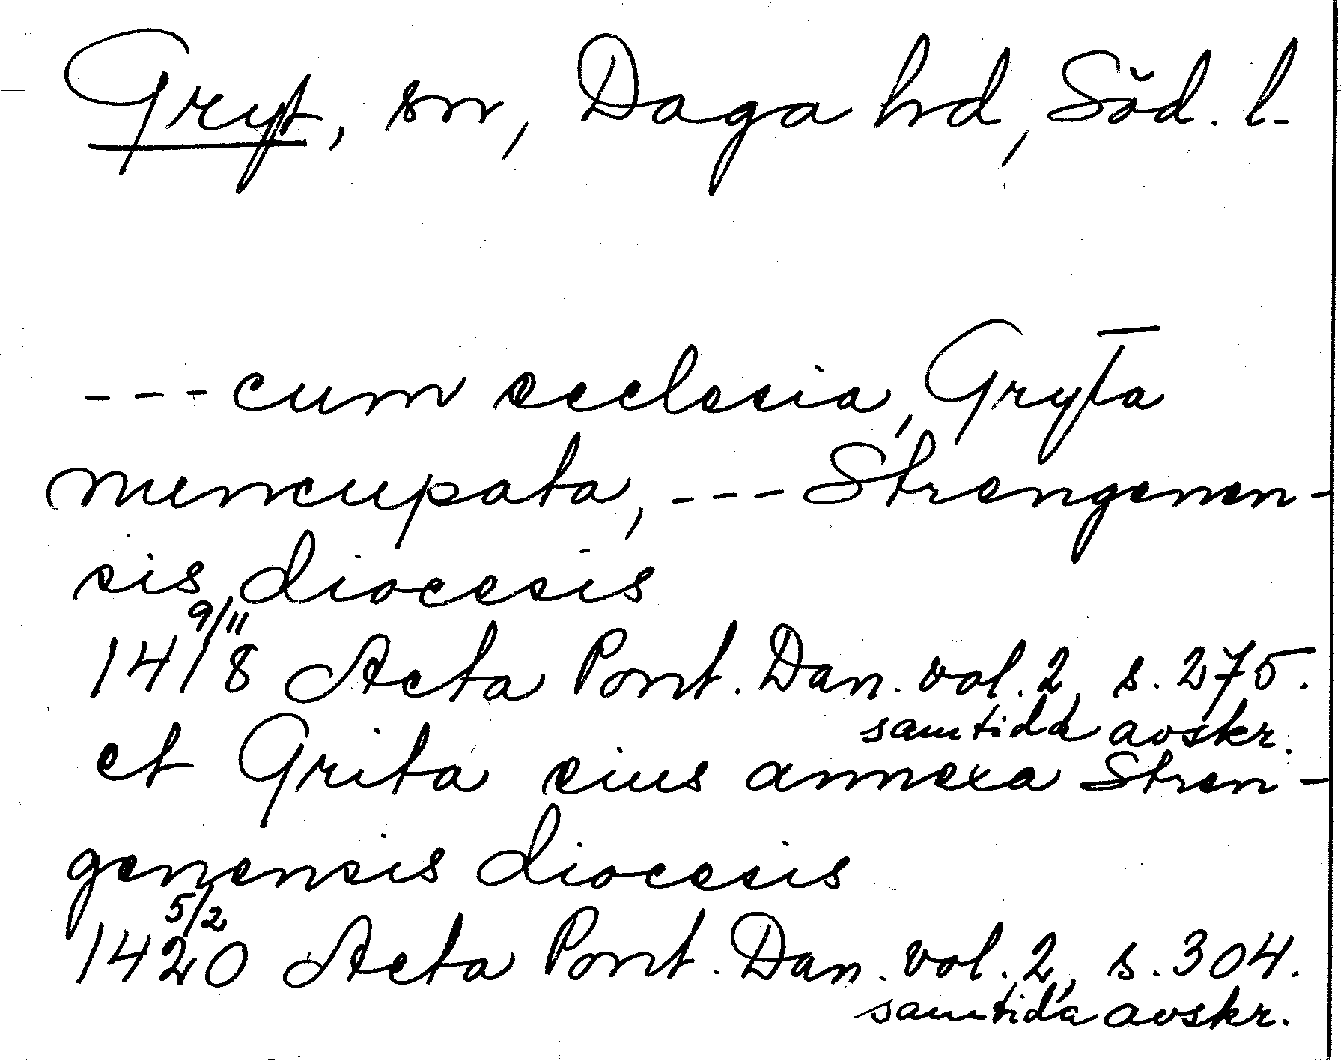 Gryt, sn, Daga hd, Söd. l.
--- cum ecclesia, Gryta
nuncupata, --- Strengenen-
sis diocesis
9/11
1418 Acta Pont. Dan. vol. 2, s. 275.
samtida avskr.
et Grita eius annexa Stren-
genensis diocesis
5/2
1420 Acta Pont. Dan. vol. 2, s. 304.
samtida avskr.